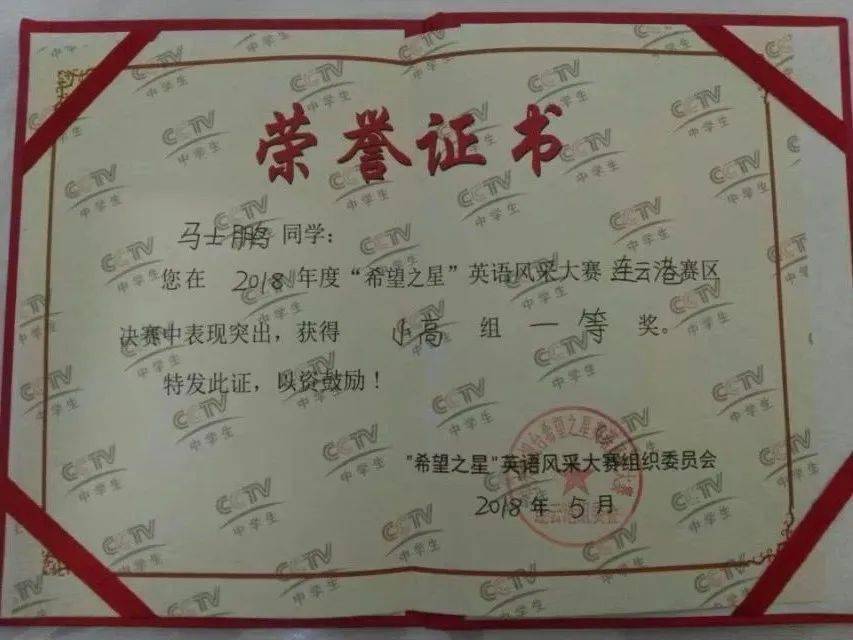 荣誉证书
马士鹏同学：
您在2018年度“希望之星”英语风采大赛连云港赛区
决赛中表现突出，获得 小高 组 一等 奖。
特发此证，以资鼓励！
"希望之星"英语风采大赛组织委员会
2018年5月
CCTV
中学生